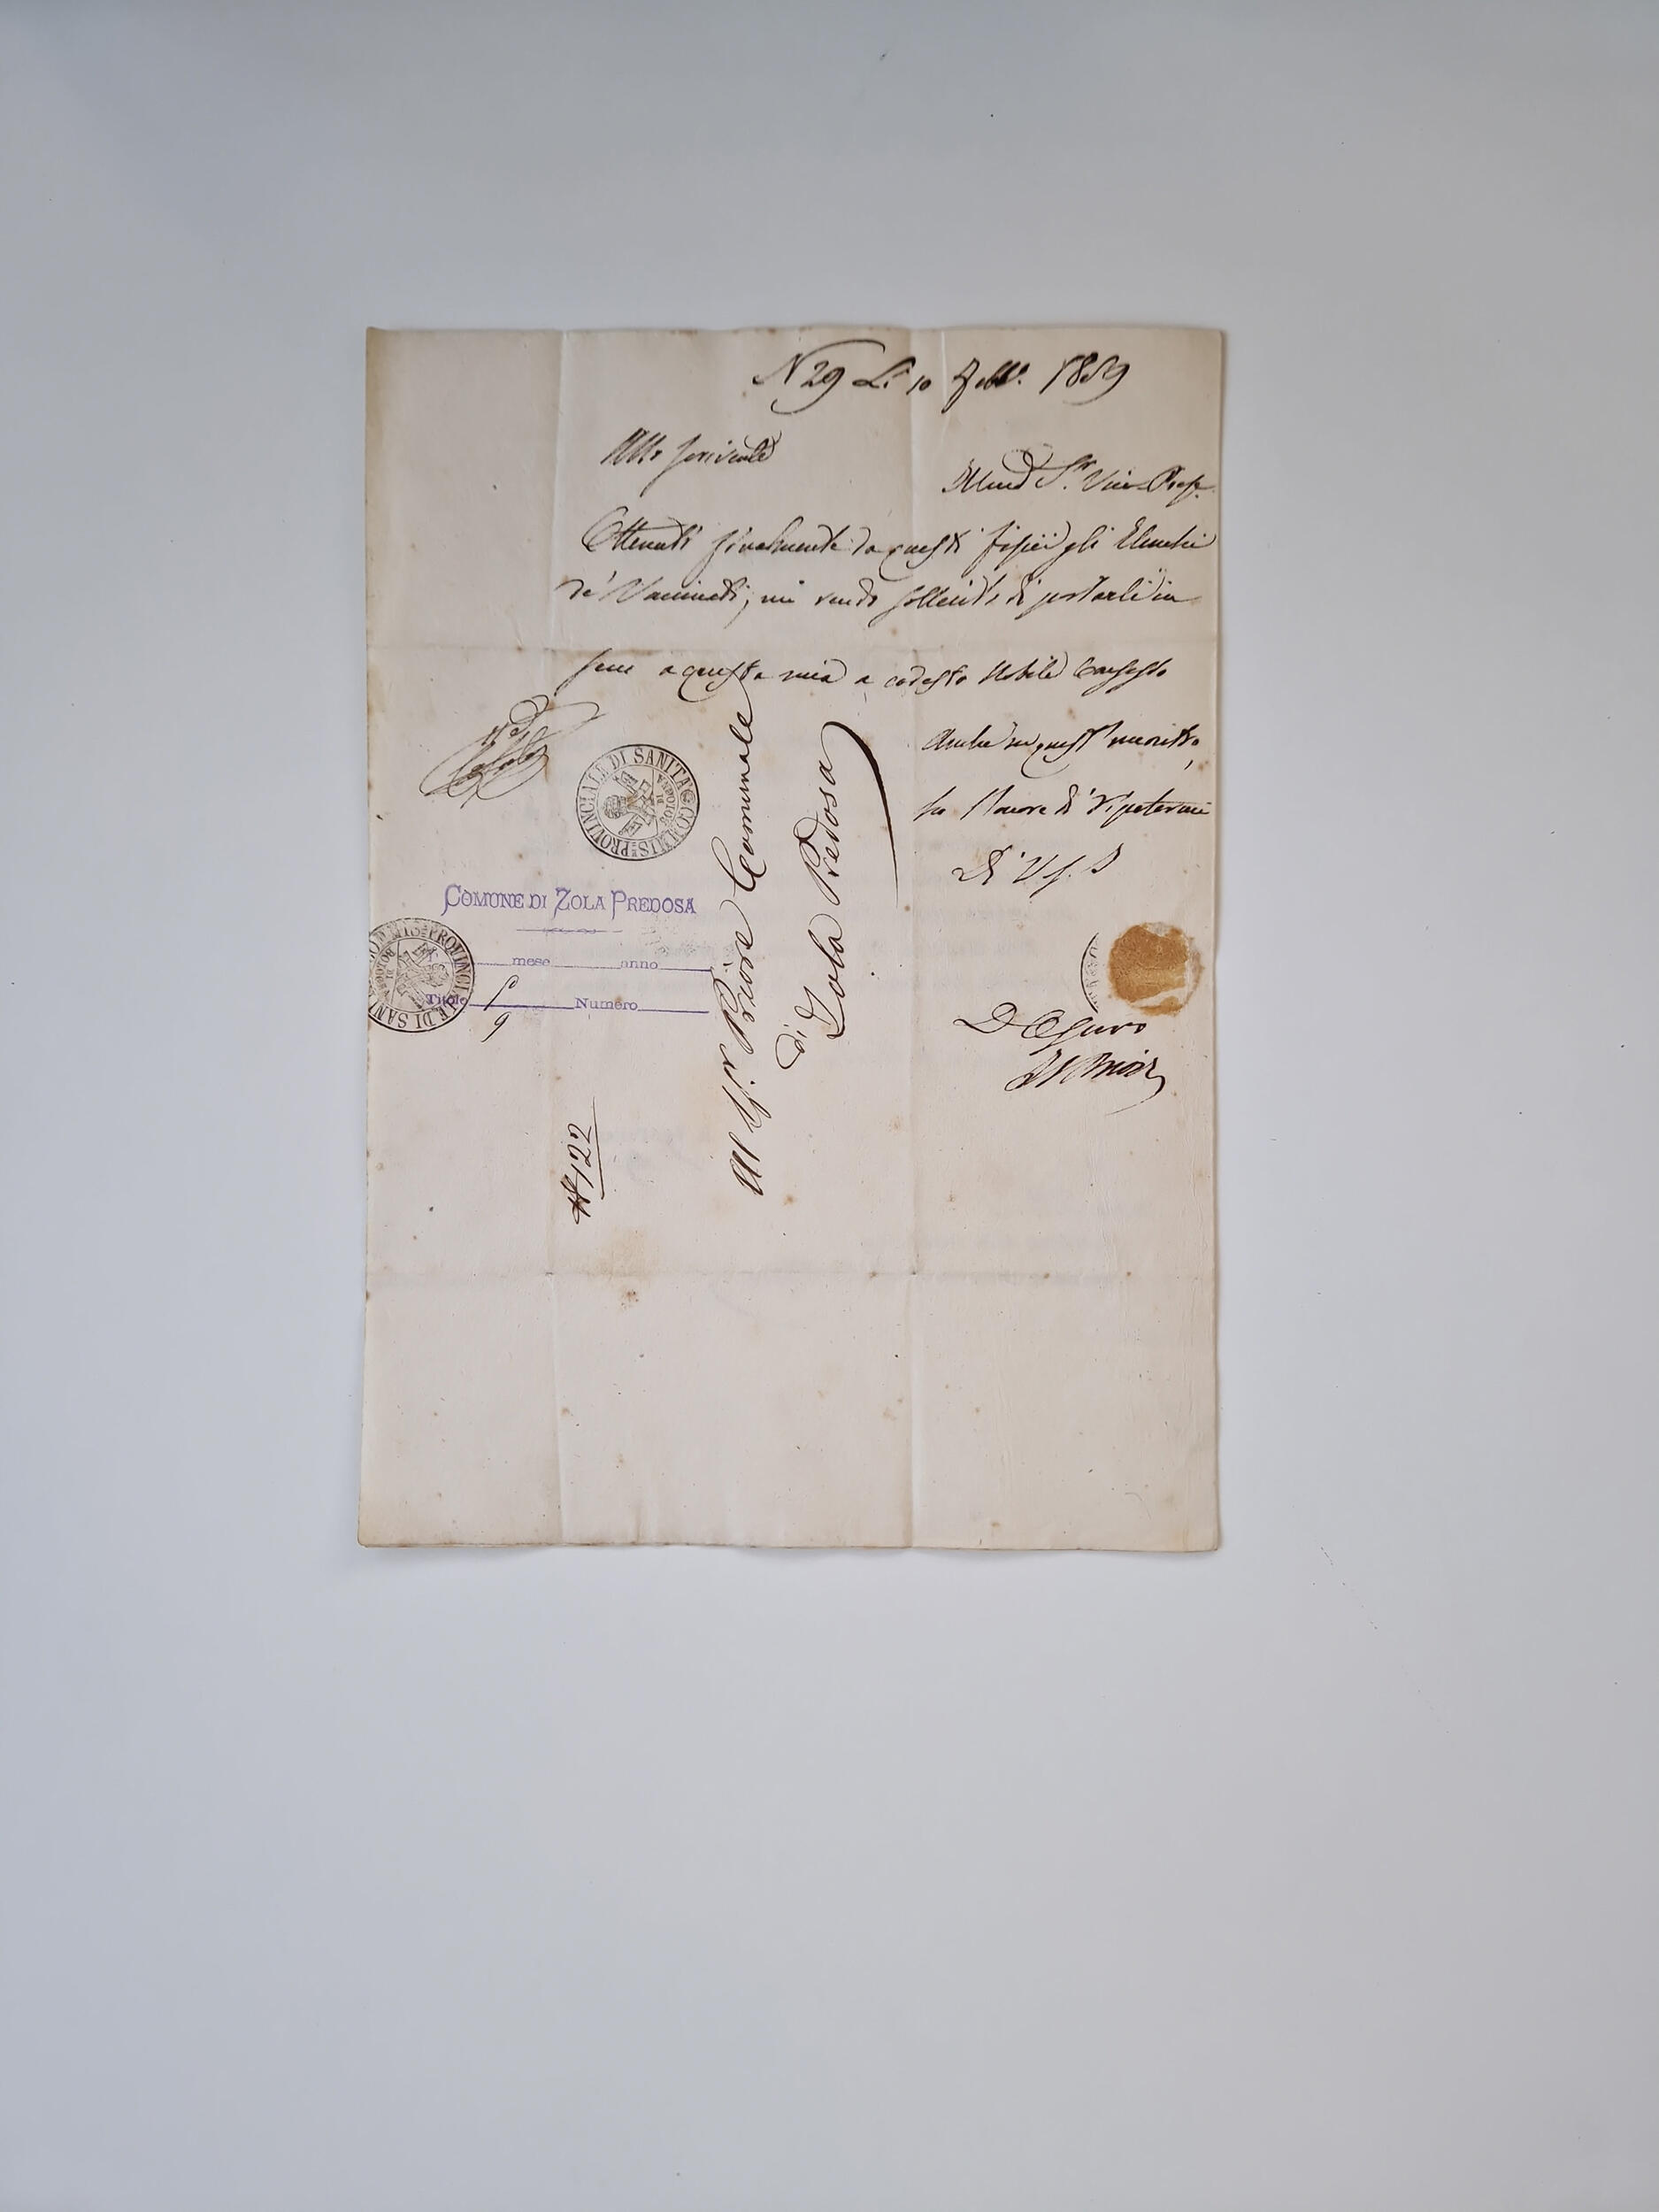 N 29 Li 10 Febb. 1859
Allo scrivente
Sr. Vice Pres.
Ottenuti finalmente da questi fisici gli Elenchi
de' Vaccinati, mi rendo sollecito di
a questa mia a codesto Nobile Consesso
Anche in quest' incontro,
ho l'onore di ripetermi
Di V. S. I
Il Priore
COMMISS. PROVINCIALE DI SANITA
DI BOLOGNA
COMUNE DI ZOLA PREDOSA
mese anno
Titolo Numero
9
COMMISS. PROVINCIALE DI SAN
DI BOLOGNA
N 122
Al Sigr Priore Comunale
di
Zola Predosa